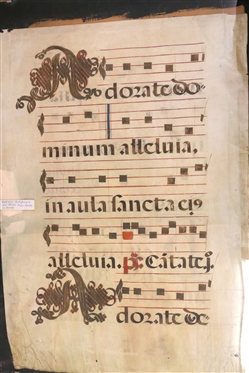 Adorate do
minum alleluia,
in aula sancta ei9
alleluia. ps. Cātate.
Adorate do